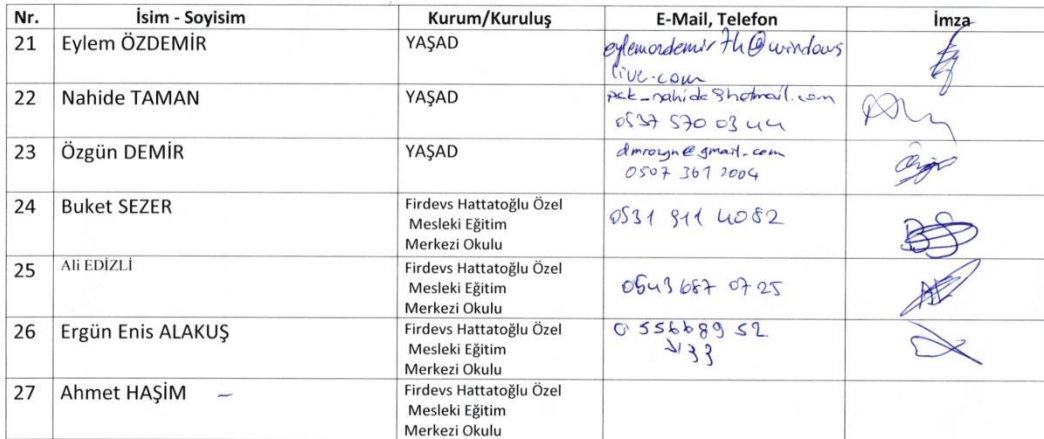 Nr. İsim - Soyisim Kurum/Kuruluş E-Mail, Telefon İmza
21 Eylem ÖZDEMİR YAŞAD eylemozdemir74@windows
live.com
22 Nahide TAMAN YAŞAD pek_nahide@hotmail.com
0537 570 03 44
23 Özgün DEMİR YAŞAD dmrozgn@gmail.com
0507 361 2004
24 Buket SEZER Firdevs Hattatoğlu Özel
Mesleki Eğitim 0531 911 4082
Merkezi Okulu
25 Ali EDİZLİ Firdevs Hattatoğlu Özel
Mesleki Eğitim 0543 687 07 25
Merkezi Okulu
26 Ergün Enis ALAKUŞ Firdevs Hattatoğlu Özel 0 556689 52
Mesleki Eğitim
Merkezi Okulu
27 Ahmet HAŞİM – Firdevs Hattatoğlu Özel
Mesleki Eğitim
Merkezi Okulu